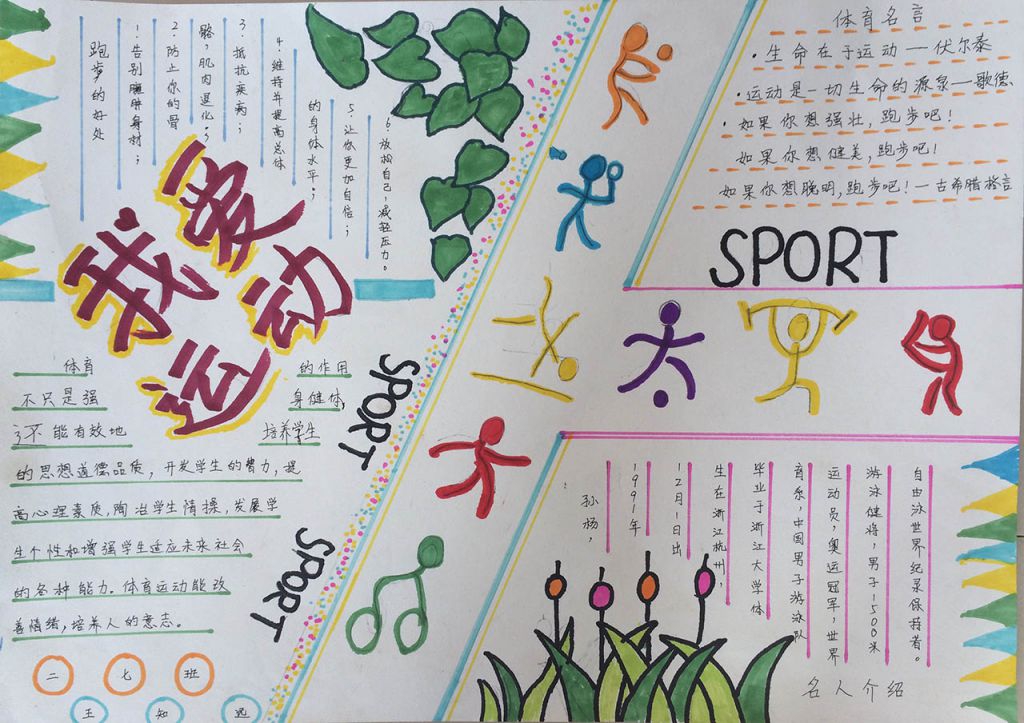 跑步的好处
1.告别臃肿身材;
2.防止你的骨
骼,肌肉退化;
3.抵抗疾病;
4.维持并提高总体
的身体水平;
5.让你更加自信;
6.放松自己,减轻压力。
我爱运动
体育的作用
不只是强身健体,
还能有效地培养学生
的思想道德品质,开发学生的智力,提
高心理素质,陶冶学生情操,发展学
生个性和增强学生适应未来社会
的各种能力。体育运动能改
善情绪,培养人的意志。
二七班
王知远
SPORT
SPORT
体育名言
·生命在于运动—伏尔泰
·运动是一切生命的源泉—歌德
·如果你想强壮,跑步吧!
如果你想健美,跑步吧!
如果你想聪明,跑步吧!—古希腊格言
SPORT
孙杨,
1991年
12月1日出
生在浙江杭州,
毕业于浙江大学体
育系,中国男子游泳队
运动员,奥运冠军,世界
游泳健将,男子1500米
自由泳世界纪录保持者。
名人介绍